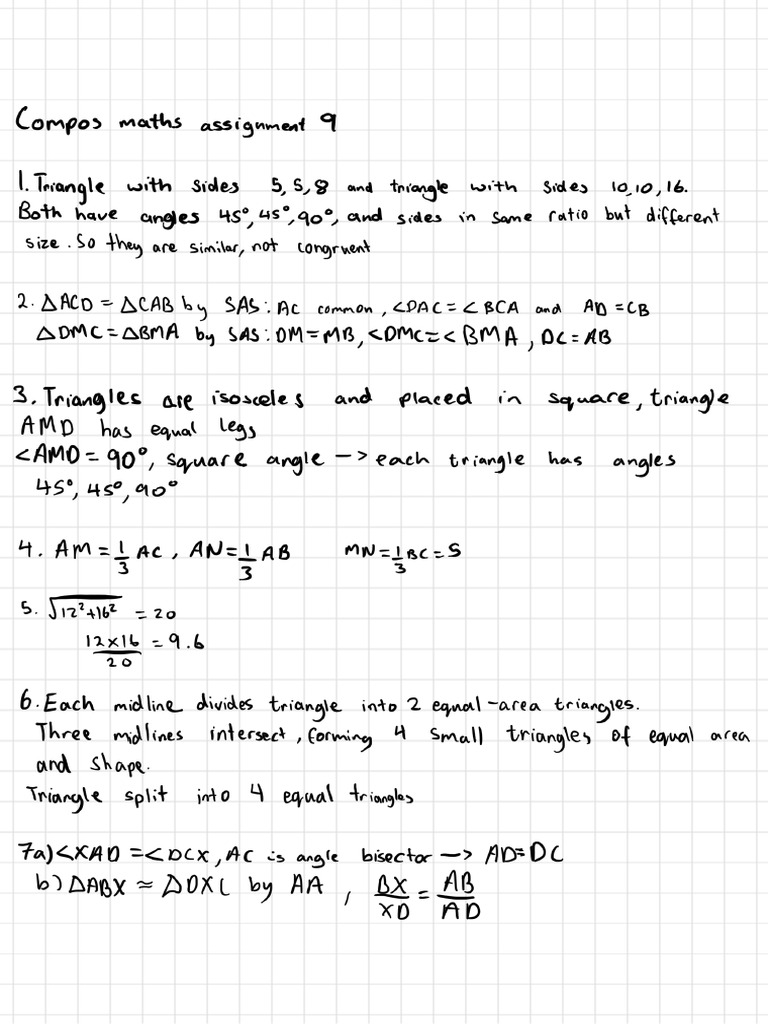 Compos maths assignment 9
1. Triangle with sides 5, 5, 8 and triangle with sides 10, 10, 16.
Both have angles 45°, 45°, 90°, and sides in same ratio but different
size. So they are similar, not congruent
2. △ACD = △CAB by SAS: AC common, <DAC = <BCA and AD = CB
△DMC = △BMA by SAS: DM = MB, <DMC = <BMA, DC = AB
3. Triangles are isosceles and placed in square, triangle
AMD has equal legs
<AMD = 90°, square angle -> each triangle has angles
45°, 45°, 90°
4. AM = 1/3 AC, AN = 1/3 AB MN = 1/3 BC = 5
5. √(12²+16²) = 20
12×16/20 = 9.6
6. Each midline divides triangle into 2 equal-area triangles.
Three midlines intersect, forming 4 small triangles of equal area
and shape.
Triangle split into 4 equal triangles
7a) <XAD = <DCX, AC is angle bisector -> AD = DC
b) △ABX ≃ △DXC by AA, BX/XD = AB/AD